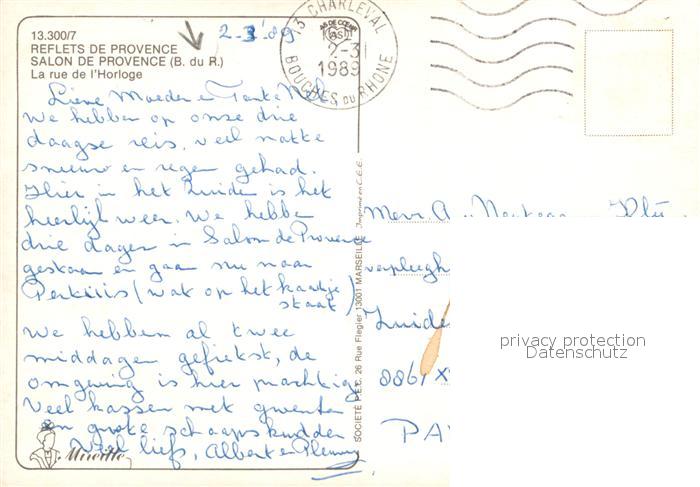 13.300/7
REFLETS DE PROVENCE
SALON DE PROVENCE (B. du R.)
La rue de l'Horloge
2-3-'89
13 CHARLEVAL
2-3
1989
BOUCHES DU RHONE
Lieve Moeder en Tante Nel.
We hebben op onze drie
daagse reis, veel natte
sneeuw en regen gehad.
Hier in het Zuiden is het
heerlijk weer. We hebben
drie dagen in Salon de Provence
gestaan en gaan nu naar
(wat op het kaartje
staat)
We hebben al twee
middagen gefietst, de
omgeving is hier prachtig
Veel kassen met groenten
en grote schaapskudden
Veel liefs, Albert en
Mireille
SOCIÉTÉ P.E.C. 26 Rue Flegier 13001 MARSEILLE Imprimé en C.E.E.
Mevr. A.
verpleegh
Zuide
8861 X
PA
privacy protection
Datenschutz